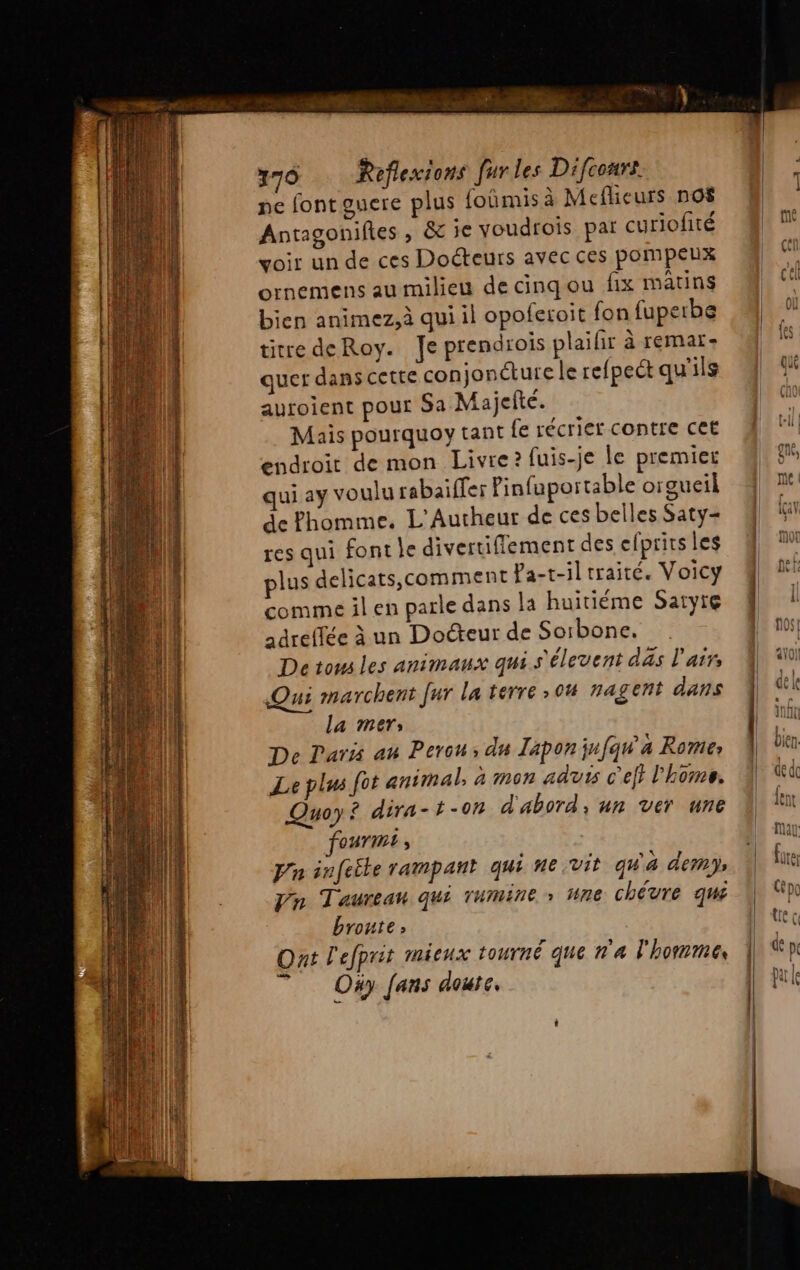 176 Reflexions ſur les Diſcours.
ne ſont guere plus ſoûmis à Meſſieurs nos
Antagoniſtes, & ie voudrois par curioſité
voir un de ces Docteurs avec ces pompeux
ornemens au milieu de cinq ou ſix mâtins
bien animez, à qui il opoſeroit ſon ſuperbe
titre de Roy. Je prendrois plaiſir à remar-
quer dans cette conjoncture le reſpect qu'ils
auroient pour Sa Majeſté.
Mais pourquoy tant ſe récrier contre cet
endroit de mon Livre? ſuis-je le premier
qui ay voulu rabaiſſer l'inſuportable orgueil
de l'homme. L'Autheur de ces belles Saty-
res qui font le divertiſſement des eſprits les
plus delicats, comment l'a-t-il traité. Voicy
comme il en parle dans la huitiéme Satyre
adreſſée à un Docteur de Sorbone.
De tous les animaux qui s'élevent dãs l'air,
Qui marchent ſur la terre, ou nagent dans
la mer,
De Paris au Perou, du Iapon juſqu'à Rome,
Le plus ſot animal, à mon advis c'eſt l'hõme.
Quoy? dira-t-on d'abord, un ver une
fourmi,
Vn inſecte rampant qui ne vit qu'à demy,
Vn Taureau qui rumine, une chévre qui
broute,
Ont l'eſprit mieux tourné que n'a l'homme,
Oüy ſans doute.